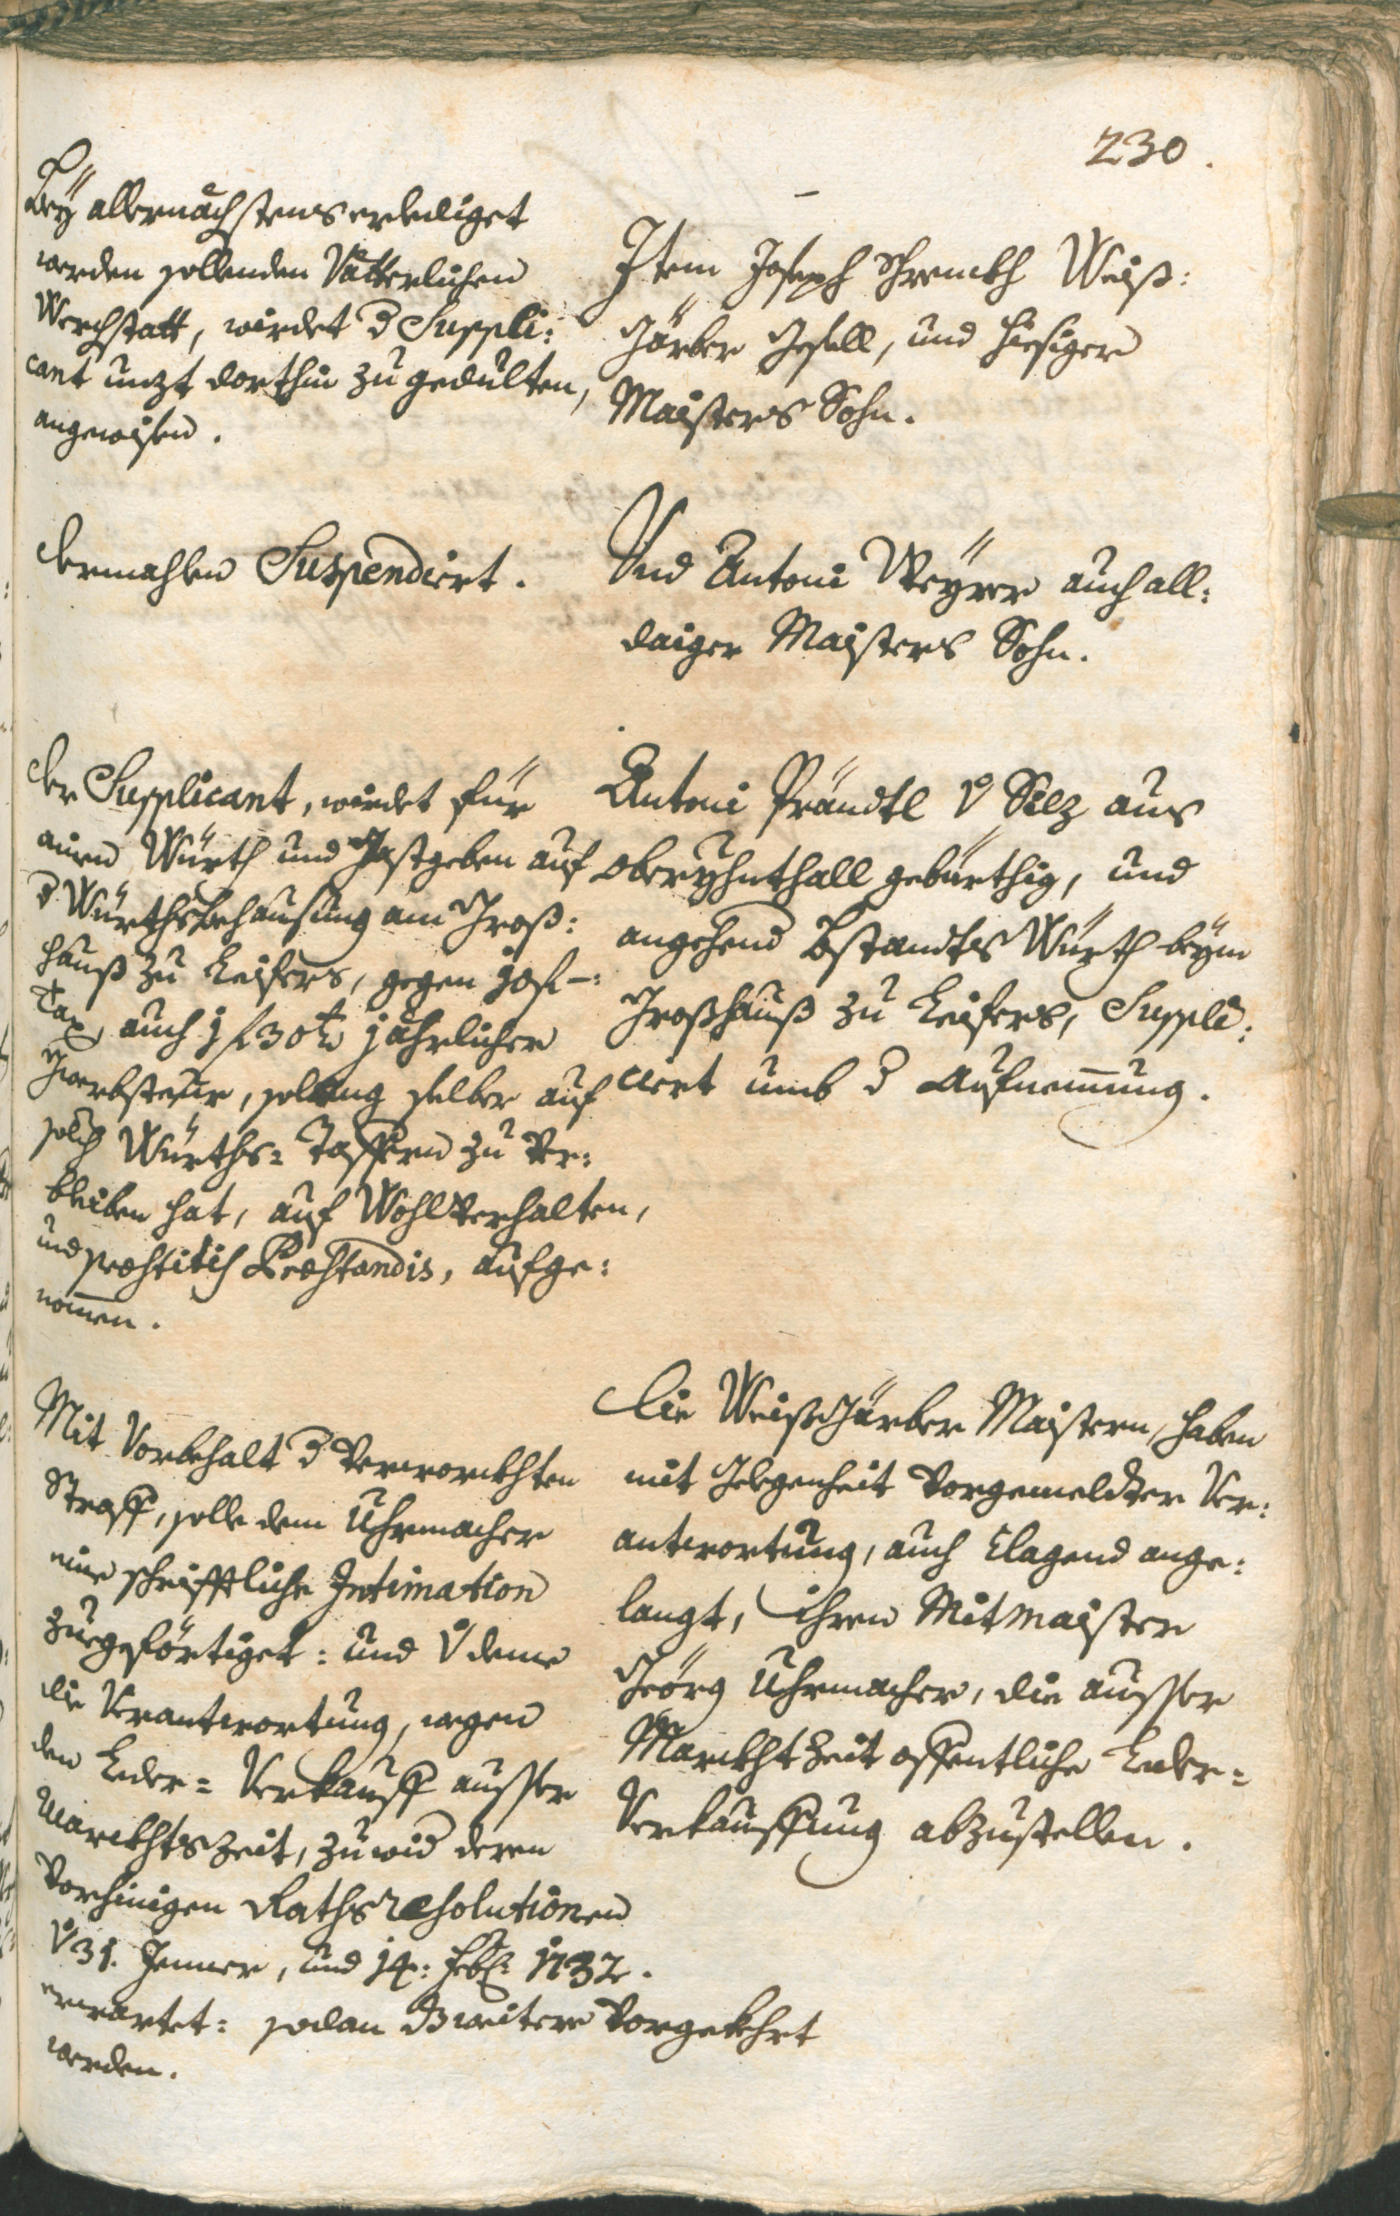 230.
Bey allernächstens erlediget
werden sollenden Vätterlichen
Werchstatt, wirdet d Suppli:
cant unzt dorthin zu gedulten,
angewisen.
Item Joseph Schrembh Weiß:
Gärber Gesell, und hiesiger
Maisters Sohn.
dermahlen Suspendiert.
Und Antoni Meÿrer auch all:
daiger Maisters Sohn.
der Supplicant, wirdet für
ainen Würth und Gastgeben auf
d Würthsbehausung am Groß:
hauß zu Leifers, gegen 10 f –:
Tax, auch 1 f 30 k jährlicher
Gwerbsteur, solang selber auf
solch Würths= Taffern zu Ver:
bleiben hat, auf Wohlverhalten,
und praestitis Praestandis, aufge:
nomen.
Antoni Prändtl v Silz aus
oberyhnthall gebürthig, und
angehend Bstandts Würth beÿm
Großhauß zu Leifers, Suppli:
ciert umb d Aufnemung.
Mit Vorbehalt d Verworchten
Straff, solle dem Uhrmacher
eine schrifftliche Intimation
zuegeförtiget: und v deme
die Verantwortung, wegen
den Leder= Verkauff ausser
Marckhtszeit, zuwid deren
Vorhinigen Raths resolutionen
v 31. Jenner, und 14: Feb: 1732.
erwartet: sodan Weitere Vorgekehrt
werden.
Die Weißgärber Maistern, haben
mit Gelegenheit Vorgemeldter Ver:
antwortung, auch Clagend ange:
langt, ihren Mitmaister
Geörg Uhrmacher, die ausser
Marckht Zeit offentliche Leder=
Verkauffung abzustellen.